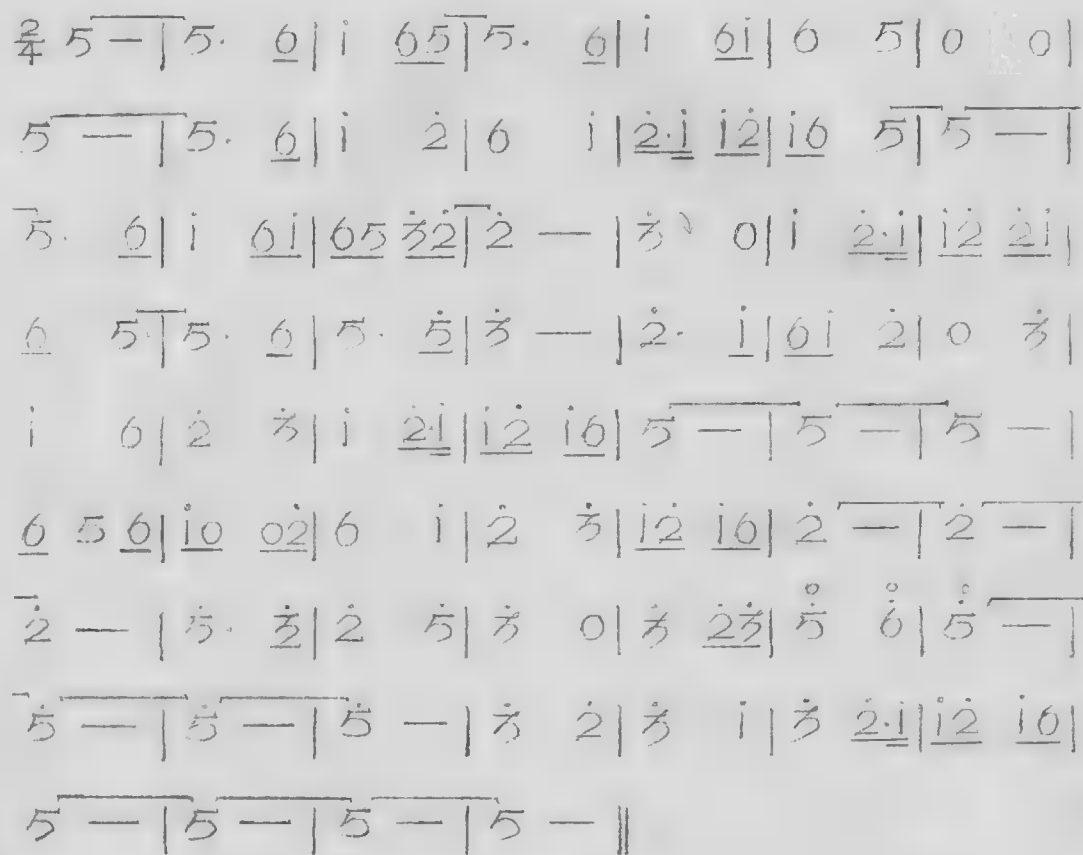 2/4 5 — | 5. 6 | i 65 | 5. 6 | i 6i | 6 5 | 0 0 |
5 — | 5. 6 | i 2̇ | 6 i | 2̇.i i2̇ | i6 5 | 5 — |
5. 6 | i 6i | 65 3̇2̇ | 2̇ — | 3̇ 0 | i 2̇.i | i2̇ 2̇i |
6 5. | 5. 6 | 5. 5̇ | 3̇ — | 2̇. i | 6i 2̇ | 0 3̇ |
i 6 | 2̇ 3̇ | i 2̇.i | i2̇ i6 | 5 — | 5 — | 5 — |
6 5 6 | i0 02̇ | 6 i | 2̇ 3̇ | i2̇ i6 | 2̇ — | 2̇ — |
2̇ — | 5̇. 3̇ | 2̇ 5̇ | 3̇ 0 | 3̇ 2̇3̇ | 5̇ 6̇ | 5̇ — |
5̇ — | 5̇ — | 5̇ — | 3̇ 2̇ | 3̇ i | 3̇ 2̇.i | i2̇ i6 |
5 — | 5 — | 5 — | 5 — ‖